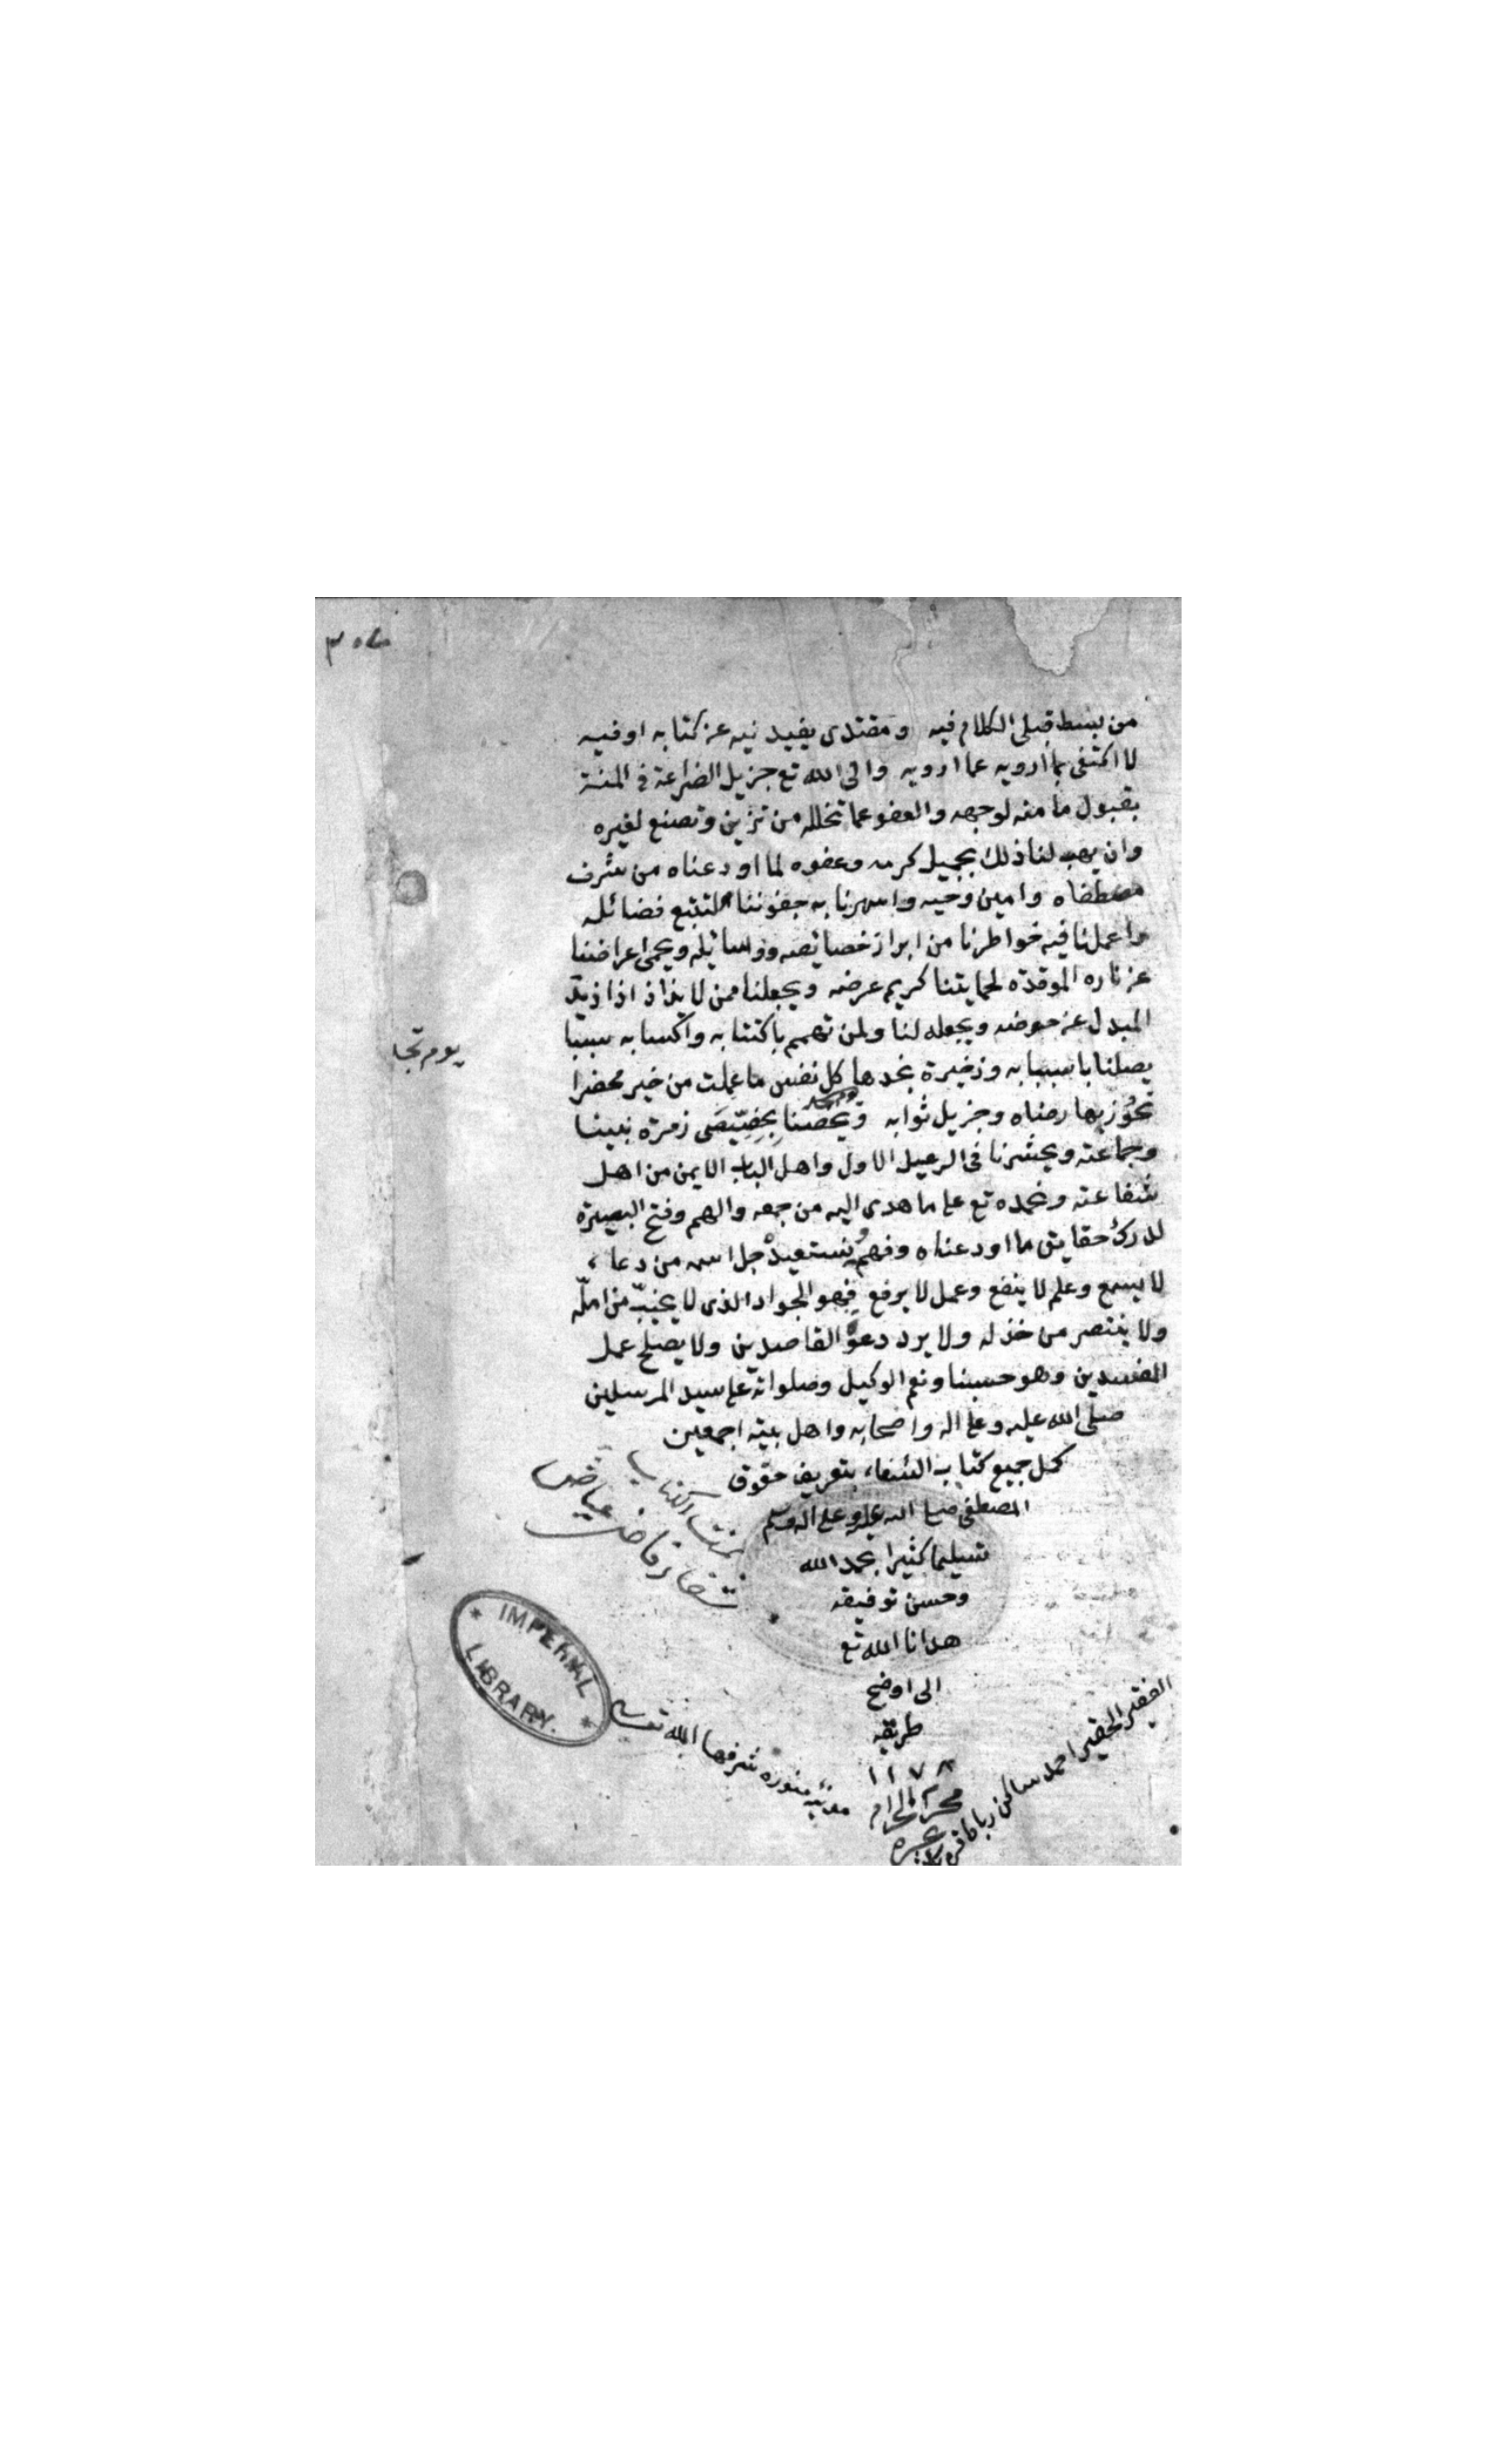 ٣٥٨
من بسط قبلى الكلام فيه ومقتدى يفيد نيه عن كتابه او فيه
لا اكتفى بما ارويه عما ارويه والى الله تع جزيل الضراعة فى المنة
بقبول ما منه لوجهه والعفو عما تخلله من تزين وتصنع لغيره
وان يهب لنا ذلك بجميل كرمه وعفوه لما اودعناه من شرف
مصطفاه وامين وحيه واسهرنا به جفوننا لتتبع فضائله
واعملنا فيه خواطرنا من ابراز خصائصه ووسائله ويحمى اعراضنا
عن ناره الموقدة لحمايتنا كريم عرضه ويجعلنا ممن لا يذاذ اذا ذيد
المبدل عن حوضه ويجعله لنا ولمن تهمم باكتتابه واكتسابه سببا
يصلنا باسبابه وذخيرة نجدها كل نفس ما عملت من خير محضرا
يوم تجد
نحوز بها رضاه وجزيل ثوابه ويخصنا بخصيصى زمرة نبينا
وجماعته ويحشرنا فى الرعيل الاول واهل الباب الايمن من اهل
شفاعته ونحمده تع على ما هدى اليه من جمعه والهم وفتح البصيرة
لدرك حقايق ما اودعناه وفهم ونستعيذه جل اسمه من دعاء
لا يسمع وعلم لا ينفع وعمل لا يرفع فهو الجواد الذى لا يخيب من امله
ولا ينتصر من خذله ولا يرد دعوة القاصدين ولا يصلح عمل
المفسدين وهو حسبنا ونعم الوكيل وصلواته على سيد المرسلين
صلى الله عليه وعلى اله واصحابه واهل بيته اجمعين
كمل جميع كتاب الشفاء بتعريف حقوق
المصطفى صلى الله عليه وعلى اله وسلم
تسليما كثيرا بحمد الله
وحسن توفيقه
هدانا الله تع
الى اوضح
طريقه
١١٧٨
محرم الحرام
تمت الكتاب
شفاء قاضى عياض
IMPERIAL
LIBRARY.
الفقير الحقير احمد ساكن رباط
مدينه منوره شرفها الله تعالى